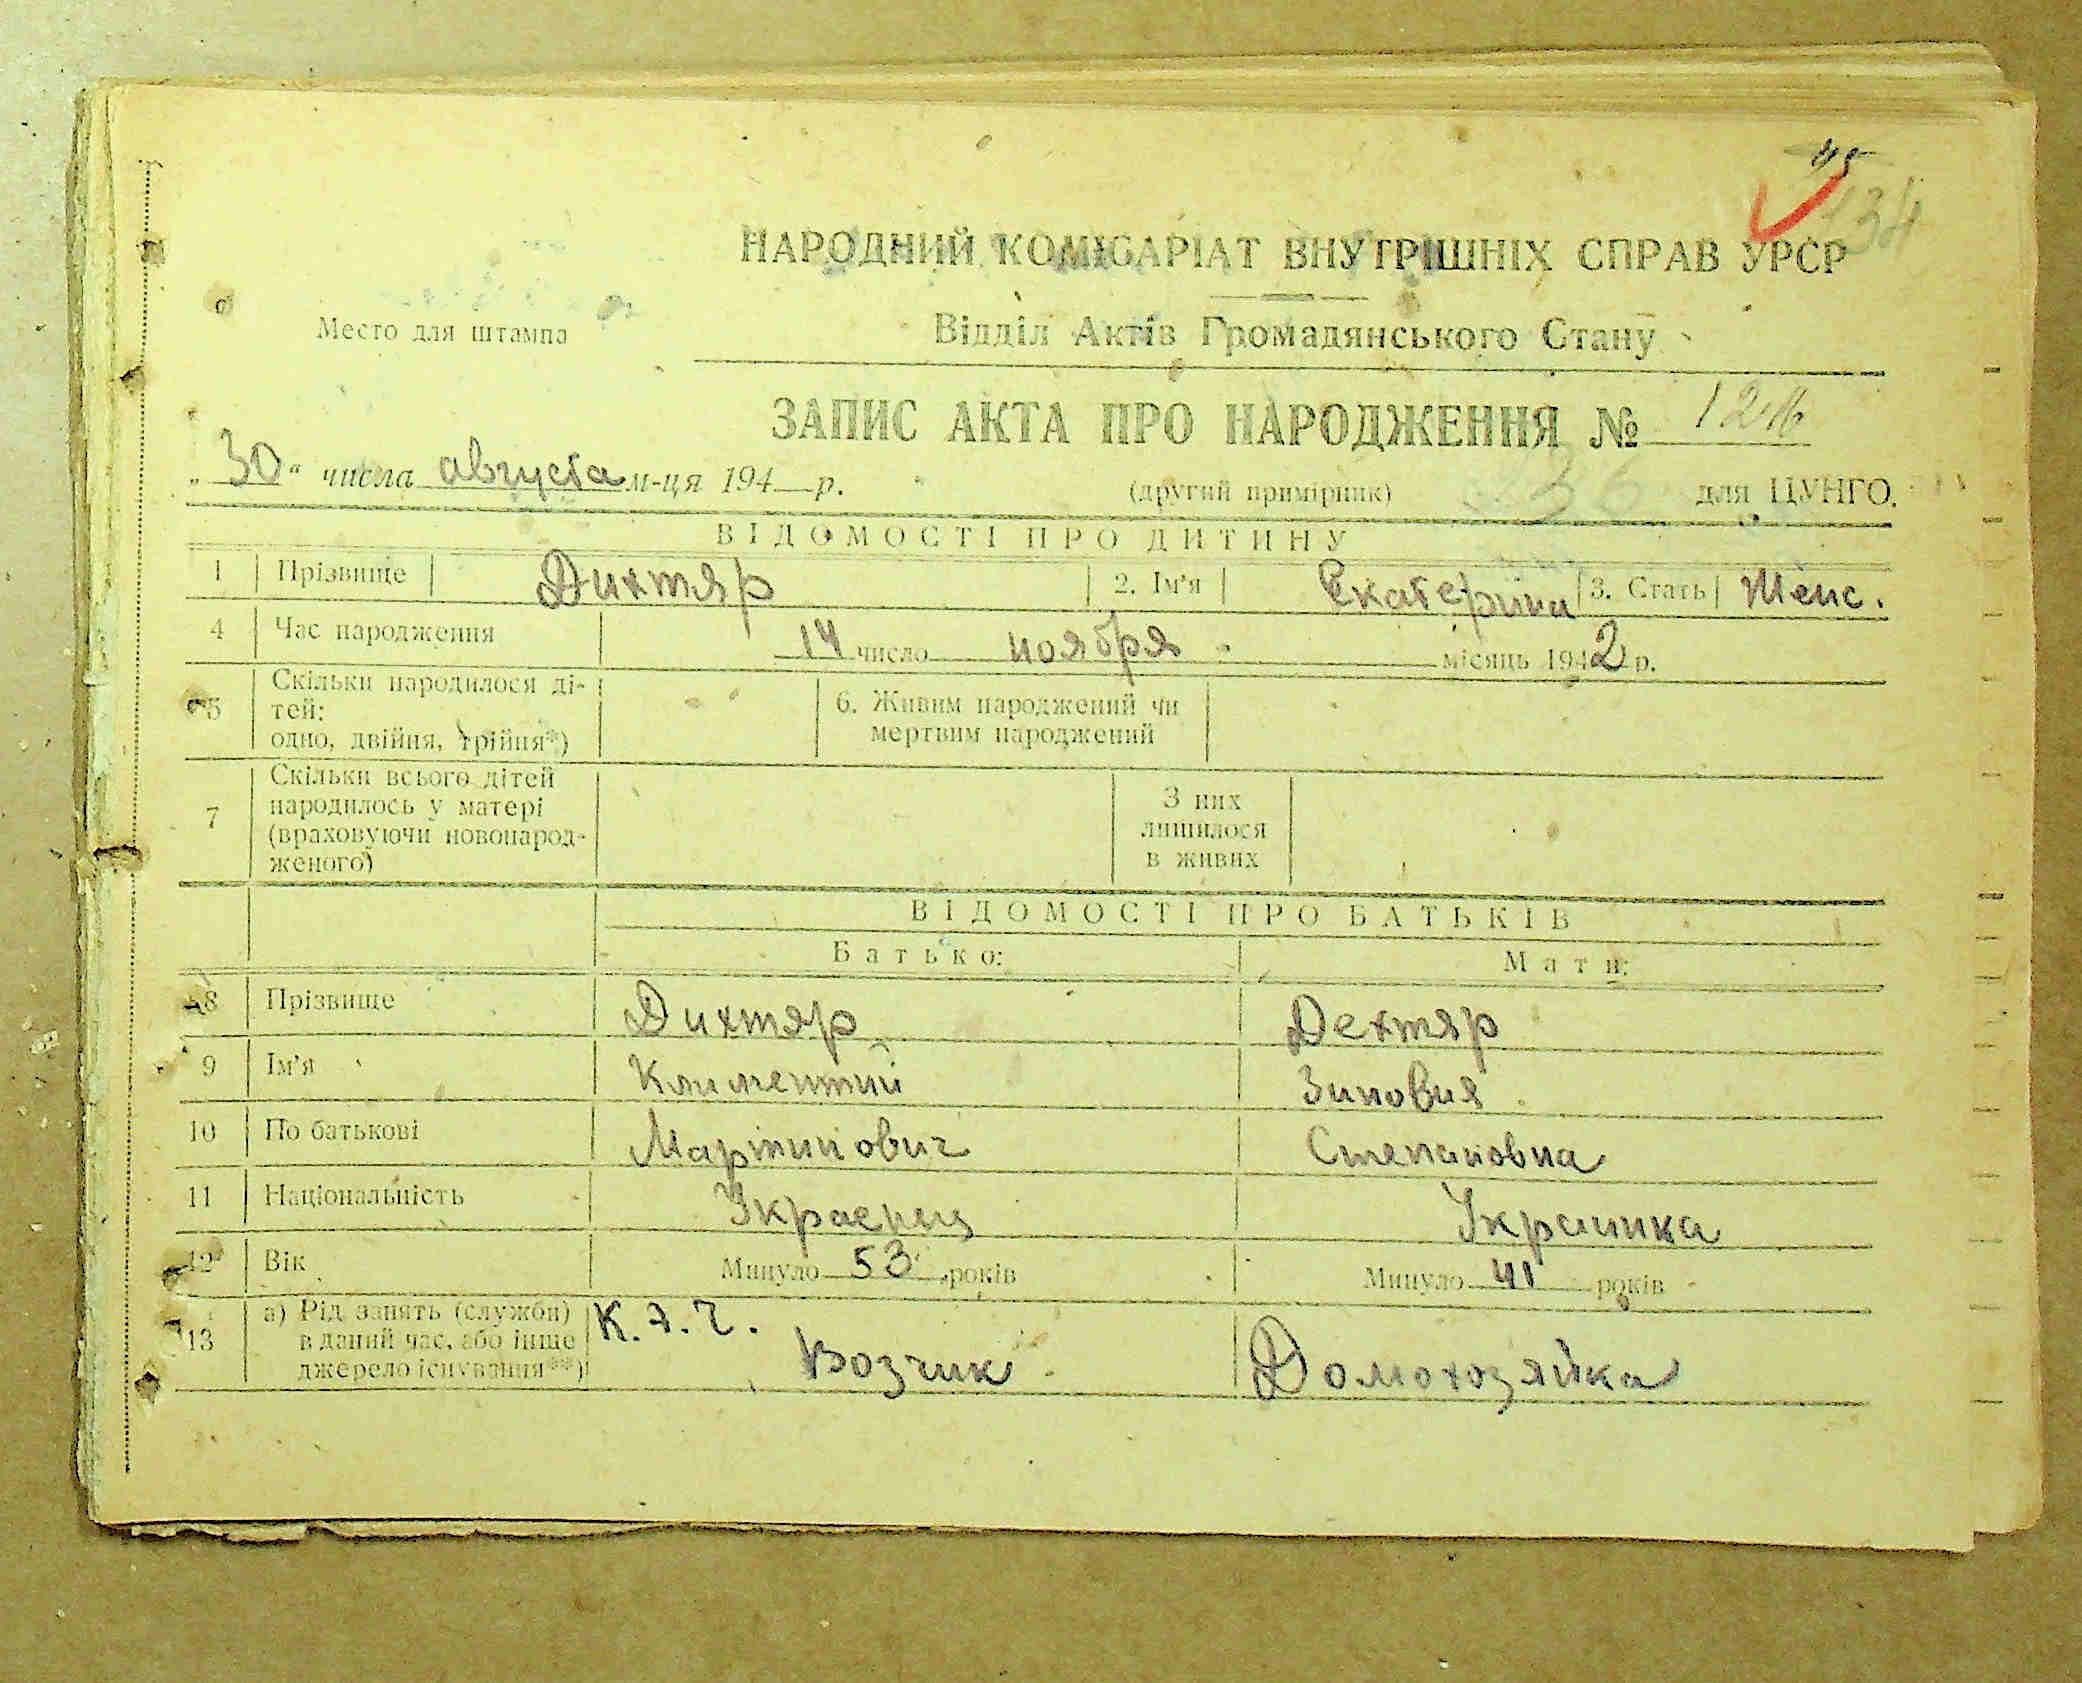 95
134
НАРОДНИЙ КОМІСАРІАТ ВНУТРІШНІХ СПРАВ УРСР
Место для штампа
Відділ Актів Громадянського Стану
ЗАПИС АКТА ПРО НАРОДЖЕННЯ № 126
„30“ числа августа м-ця 194 р. (другий примірник) 36 для ЦУНГО.
ВІДОМОСТІ ПРО ДИТИНУ
1 Прізвище Дихтяр 2. Ім'я Екатерина 3. Стать Женс.
4 Час народження 14 число ноября місяць 1942 р.
5 Скільки народилося ді-
тей:
одно, двійня, трійня*)
6. Живим народжений чи
мертвим народжений
7 Скільки всього дітей
народилось у матері
(враховуючи новонарод-
женого)
З них
лишилося
в живих
ВІДОМОСТІ ПРО БАТЬКІВ
Батько: Мати:
8 Прізвище Дихтяр Дехтяр
9 Ім'я Климентий Зиновия
10 По батькові Мартинович Степановна
11 Національність Украенец Украинка
12 Вік Минуло 53 років Минуло 41 років
13 а) Рід занять (служби)
в даний час, або інше
джерело існування**)
К.Э.Ч.
Возчик Домохозяйка